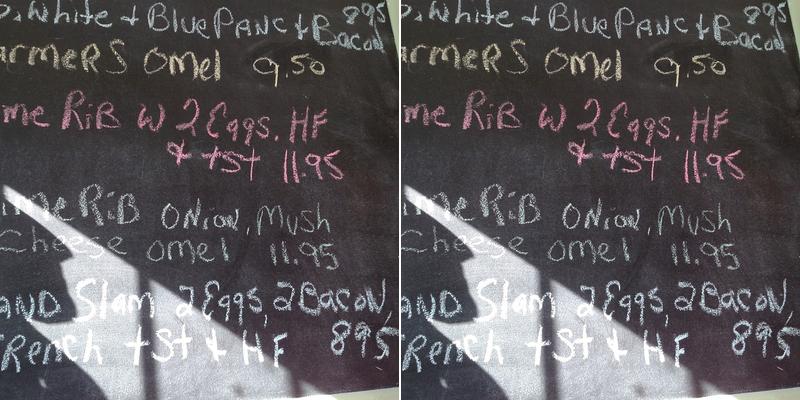 White & Blue Panc & Bacon 895
armers Omel 9.50
me RiB W 2 Eggs, HF
& tst 11.95
ime RiB Onion, Mush
Cheese omel 11.95
and Slam 2 Eggs, 2 Bacon,
Rench tst & HF 895
White & Blue Panc & Bacon 895
armers Omel 9.50
me RiB W 2 Eggs, HF
& tst 11.95
ime RiB Onion, Mush
Cheese omel 11.95
and Slam 2 Eggs, 2 Bacon,
Rench tst & HF 895